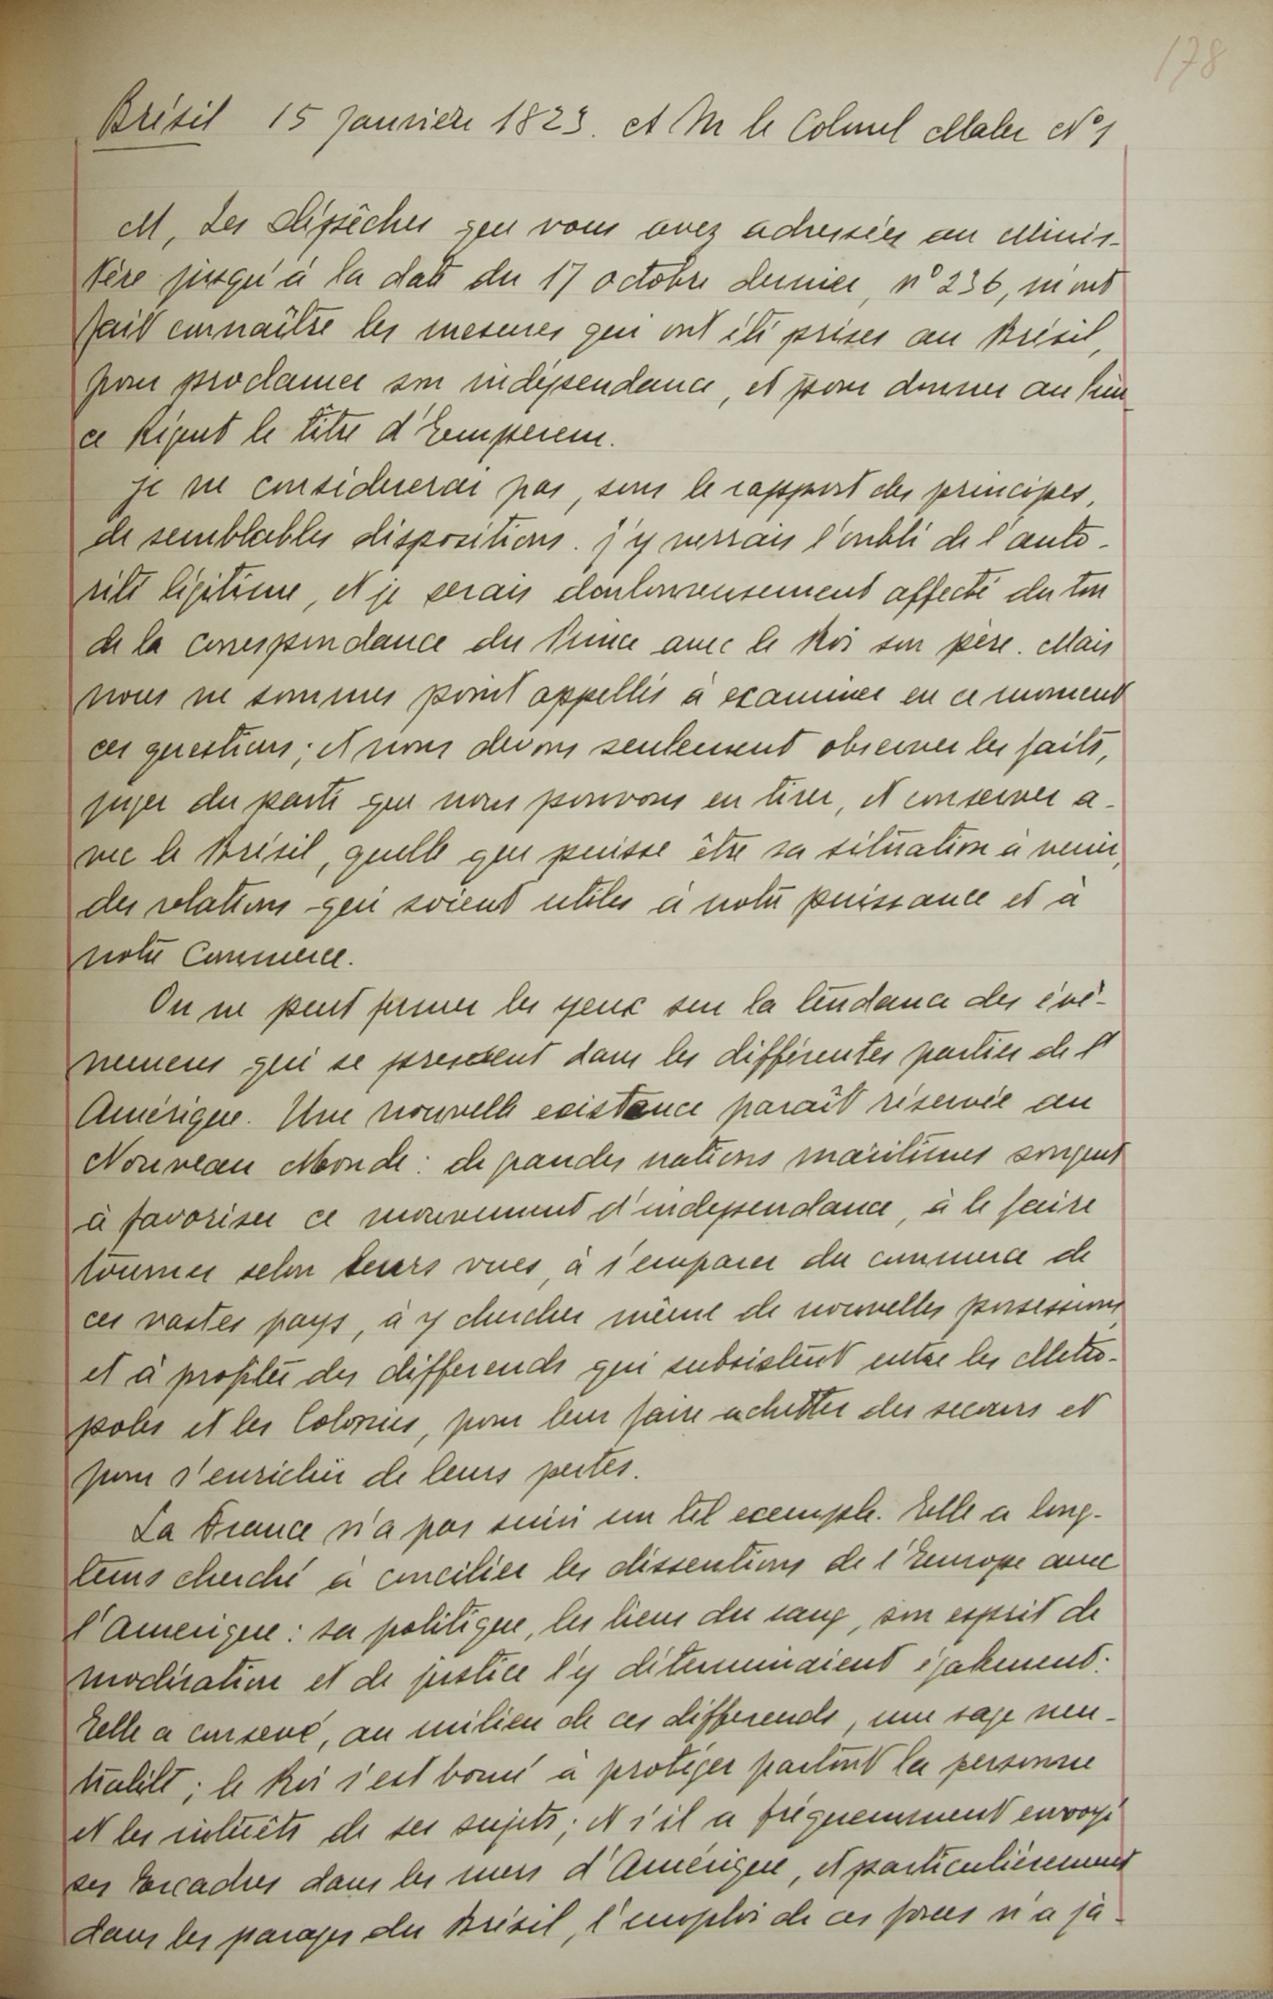 178
Brésil 15 Janvier 1823. A M le Colonel Maler N° 1
M, Les dépêches que vous avez adressées au Minis-
tère jusqu'à la date du 17 octobre dernier, n° 236, m'ont
fait connaître les mesures qui ont été prises au Brésil,
pour proclamer son indépendance, et pour donner au Prin-
ce Régent le titre d'Empereur.
je ne considererai pas, sous le rapport des principes,
de semblables dispositions. j'y verrais l'oubli de l'auto-
rité légitime, et je serais douloureusement affecté du ton
de la correspondance du Prince avec le Roi son père. Mais
nous ne sommes point appellés à examiner en ce moment
ces questions; et nous devons seulement observer les faits,
juger du parti que nous pouvons en tirer, et conserver a-
vec le Brésil, quelle que puisse être sa situation à venir,
des relations qui soient utiles à notre puissance et à
notre Commerce.
On ne peut fermer les yeux sur la tendance des évé-
nemens qui se presentent dans les différentes parties de l'
Amérique. Une nouvelle existence paraît réservée au
Nouveau Monde: de grandes nations maritimes songent
à favoriser ce mouvement d'indépendance, à le faire
tourner selon leurs vues, à s'emparer du commerce de
ces vastes pays, à y chercher même de nouvelles possessions,
et à profiter des differends qui subsistent entre les Metro-
poles et les Colonies, pour leur faire achetter des secours et
pour s'enrichir de leurs pertes.
La France n'a pas suivi un tel exemple. Elle a long-
tems cherché à concilier les dissentions de l'Europe avec
l'Amerique: sa politique, les liens du sang, son esprit de
modération et de justice l'y déterminaient également:
Elle a conservé, au milieu de ces differends, une sage neu-
tralité; le Roi s'est borné à protéger partout la personne
et les intérêts de ses sujets; et s'il a fréquemment envoyé
ses Escadres dans les mers d'Amérique, et particulièrement
dans les parages du Brésil, l'emploi de ces forces n'a ja-